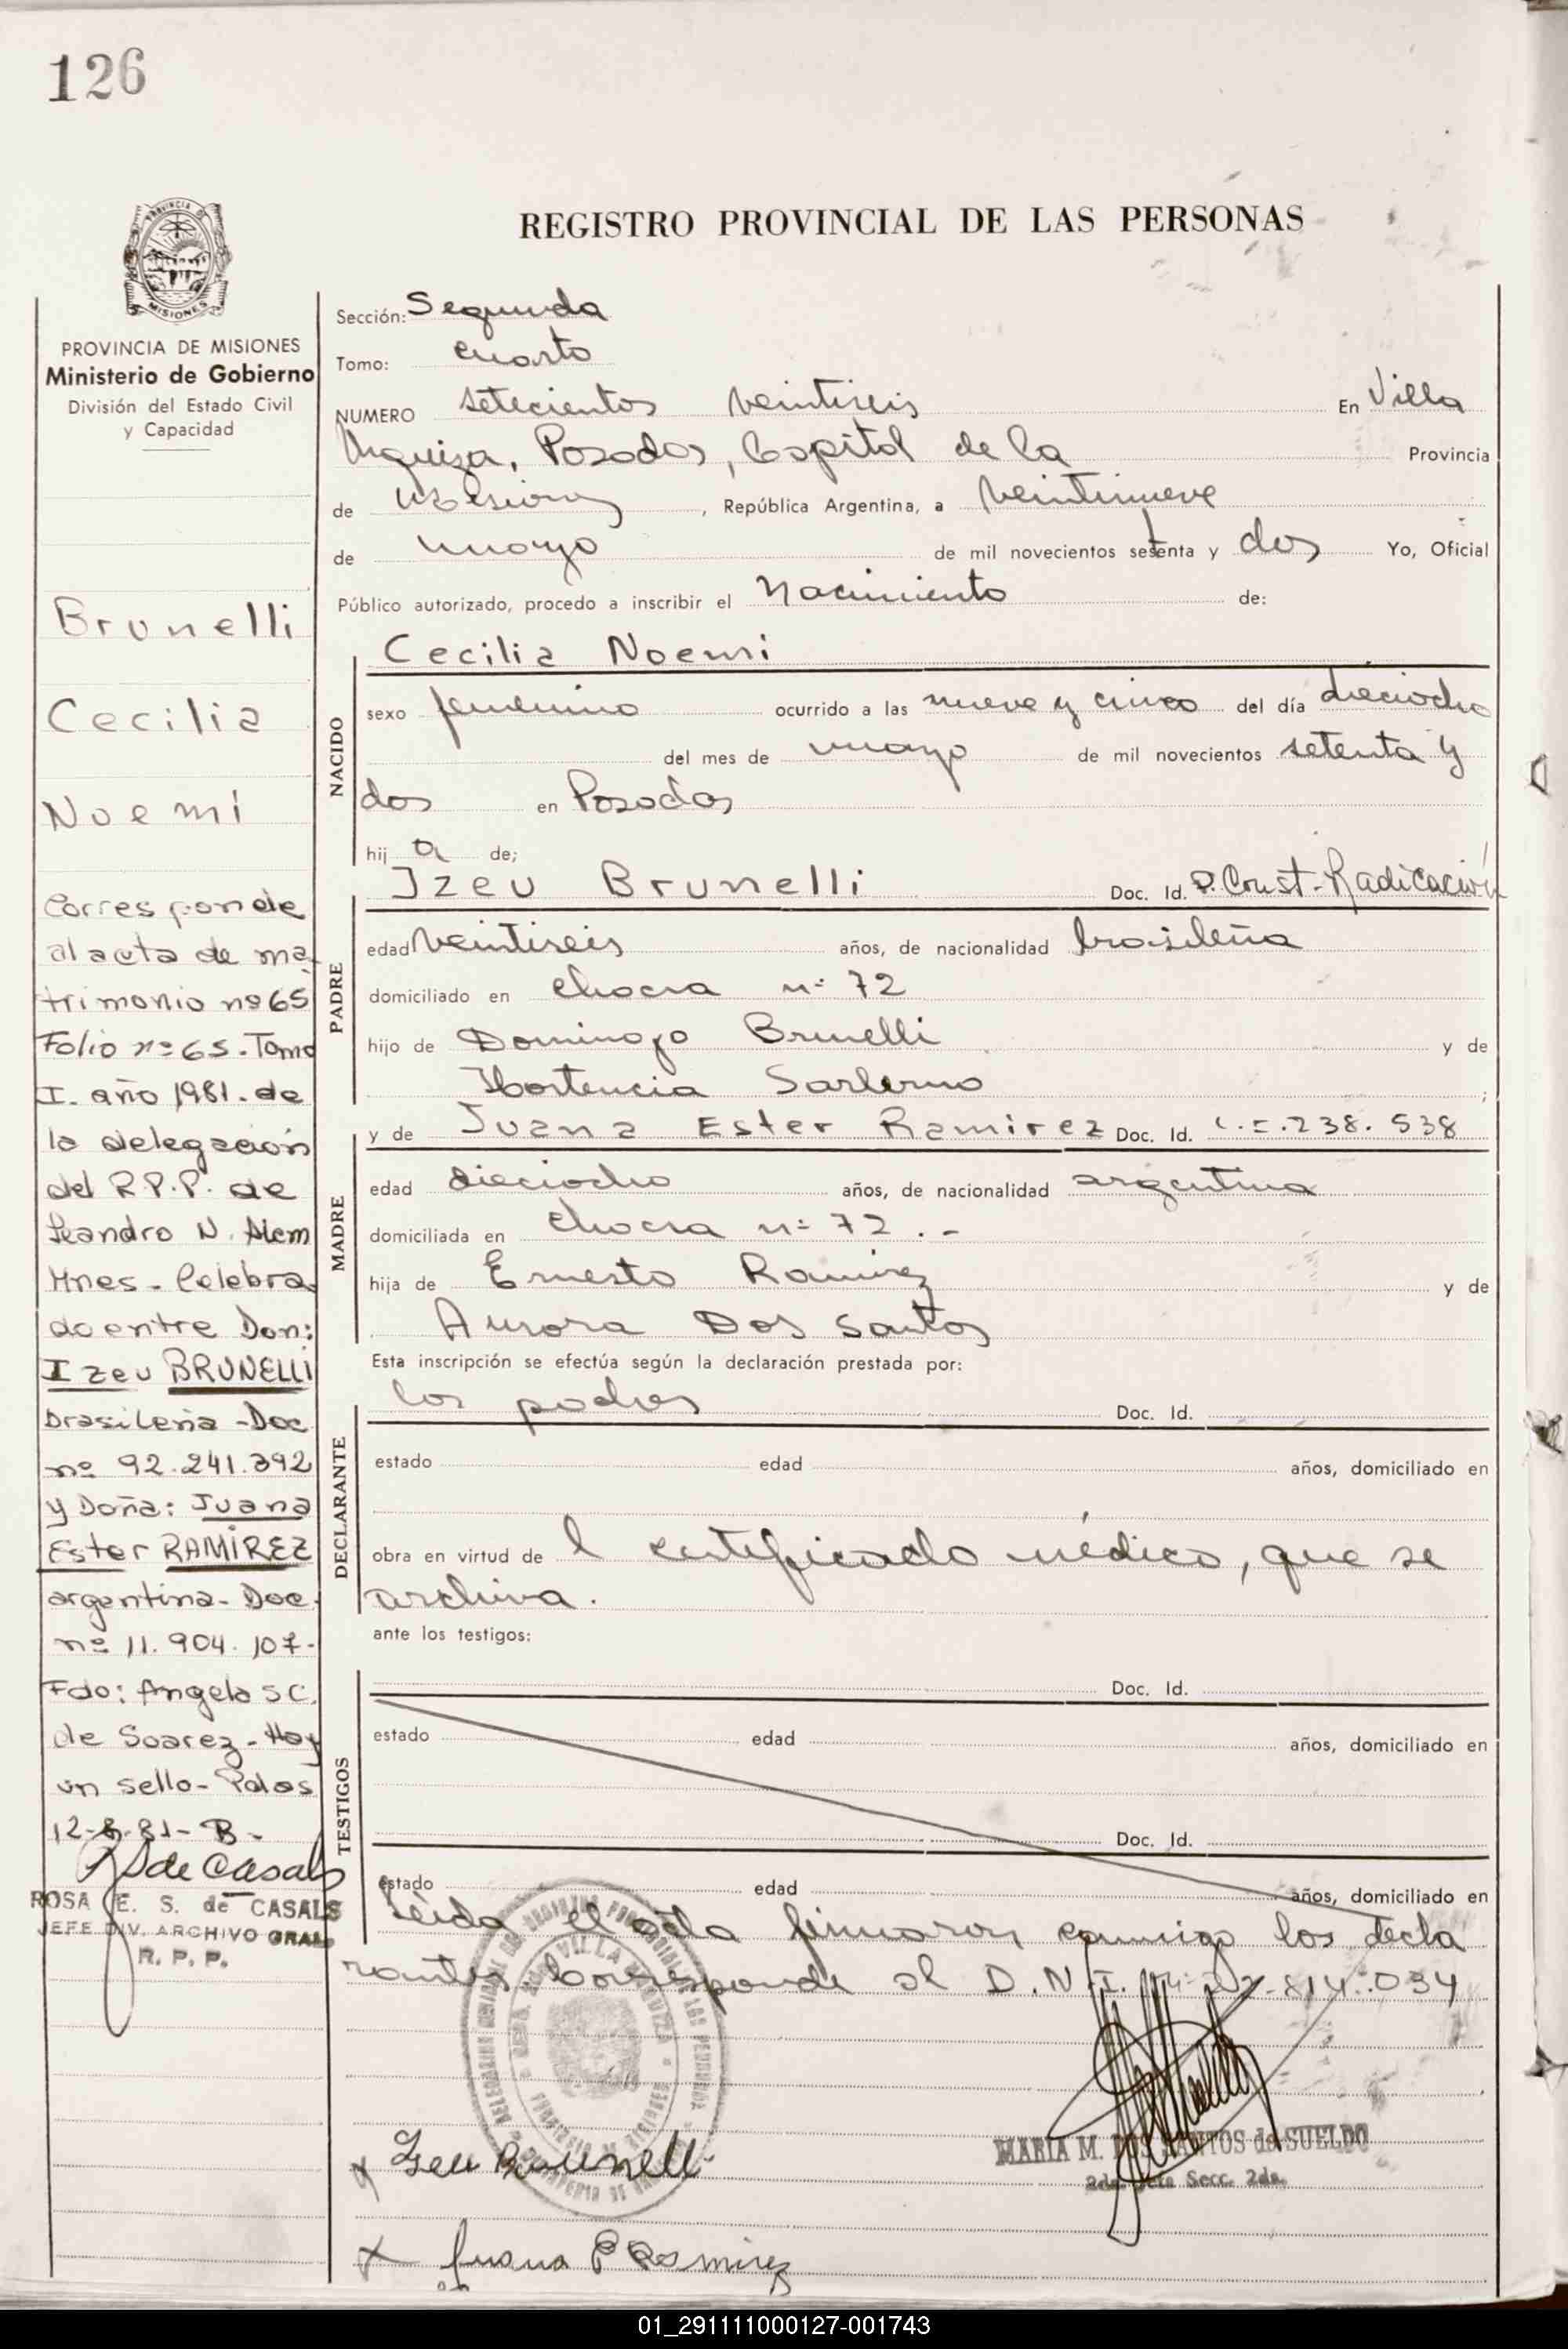 126
REGISTRO PROVINCIAL DE LAS PERSONAS
PROVINCIA DE MISIONES
Ministerio de Gobierno
División del Estado Civil
y Capacidad
Brunelli
Cecilia
Noemí
Corresponde
al acta de ma
trimonio nº 65
Folio nº 65. Tomo
I. año 1981. de
la delegación
del R.P.P. de
Leandro N. Alem
Mnes - Celebra
do entre Don:
Izeu BRUNELLI
brasileña - Doc
nº 92.241.392
y Doña: Juana
Ester RAMÍREZ
argentina - Doc.
nº 11.904.107-
Fdo: Angela S C.
de Soarez - Hay
un sello - Pdas
12-8-81- B-
de Casals
ROSA E. S. de CASALS
JEFE DIV. ARCHIVO GRAL.
R. P. P.
Sección: Segunda
Tomo: cuarto
NUMERO setecientos veintiseis En Villa
Urquiza, Posadas, Capital de la Provincia
de Misiones, República Argentina, a veintinueve
de mayo de mil novecientos setenta y dos Yo, Oficial
Público autorizado, procedo a inscribir el Nacimiento de:
Cecilia Noemi
NACIDO
sexo femenino ocurrido a las nueve y cinco del día dieciocho
del mes de mayo de mil novecientos setenta y
dos en Posadas
hij a de;
Izeu Brunelli Doc. Id. P. Const. Radicación
PADRE
edad veintiseis años, de nacionalidad brasileña
domiciliado en chacra nº 72
hijo de Domingo Brunelli y de
Hortencia ;
y de Juana Ester Ramirez Doc. Id. 238.538
MADRE
edad dieciocho años, de nacionalidad argentina
domiciliada en chacra nº 72.-
hija de Ernesto Ramirez y de
Aurora Dos Santos
Esta inscripción se efectúa según la declaración prestada por:
los padres Doc. Id.
DECLARANTE
estado edad años, domiciliado en
obra en virtud de l certificado médico, que se
archiva.
ante los testigos:
TESTIGOS
Doc. Id.
estado edad años, domiciliado en
Doc. Id.
estado edad años, domiciliado en
Leida el acta firmaron conmigo los decla
rantes. Corresponde al D.N.I. 814.034
MARIA M. DOS SANTOS de SUELDO
Secc. 2da.
x Izeu Brunelli
x Juana E Ramirez
01_291111000127-001743